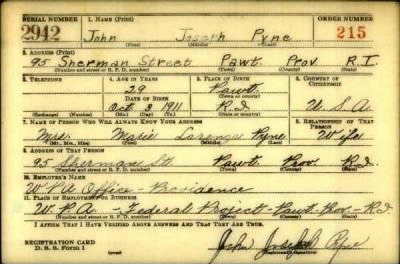 SERIAL NUMBER 1. NAME (Print) ORDER NUMBER
2942 John Joseph Pyne 215
(First) (Middle) (Last)
2. ADDRESS (Print)
95 Sherman Street Pawt. Prov R.I.
(Number and street or R. F. D. number) (Town) (County) (State)
3. TELEPHONE 4. AGE IN YEARS 5. PLACE OF BIRTH 6. COUNTRY OF CITIZENSHIP
29 Pawt.
DATE OF BIRTH (Town or county)
Oct 3 1911 R.I U.S.A.
(Exchange) (Number) (Mo.) (Day) (Yr.) (State or country)
7. NAME OF PERSON WHO WILL ALWAYS KNOW YOUR ADDRESS 8. RELATIONSHIP OF THAT PERSON
Mrs. Marie Pyne Wife
(Mr., Mrs., Miss) (First) (Middle) (Last)
9. ADDRESS OF THAT PERSON
95 Sherman St. Pawt. Prov R.I.
(Number and street or R. F. D. number) (Town) (County) (State)
10. EMPLOYER'S NAME
W.P.A Office - Providence
11. PLACE OF EMPLOYMENT OR BUSINESS
W.P.A. - Federal Project - Pawt - Prov - R.I.
(Number and street or R. F. D. number) (Town) (County) (State)
I AFFIRM THAT I HAVE VERIFIED ABOVE ANSWERS AND THAT THEY ARE TRUE.
REGISTRATION CARD
D. S. S. Form 1 John Joseph Pyne